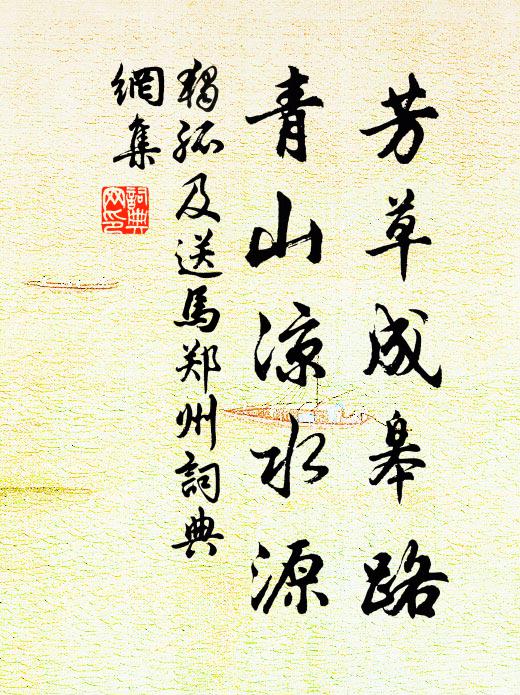 芳草成皋路
青山凉水源
独孤及送馬郑州詞典
網集
詞典網印